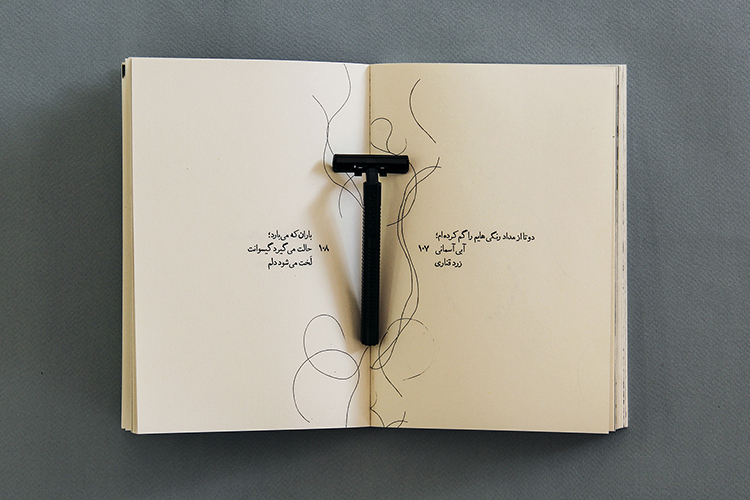 دو تا از مداد رنگی هایم را گم کرده ام؛
۱۰۷ آبی آسمانی
زرد قناری
باران که می بارد؛
۱۰۸ حالت می گیرد گیسوانت
لَخت می شود دلم